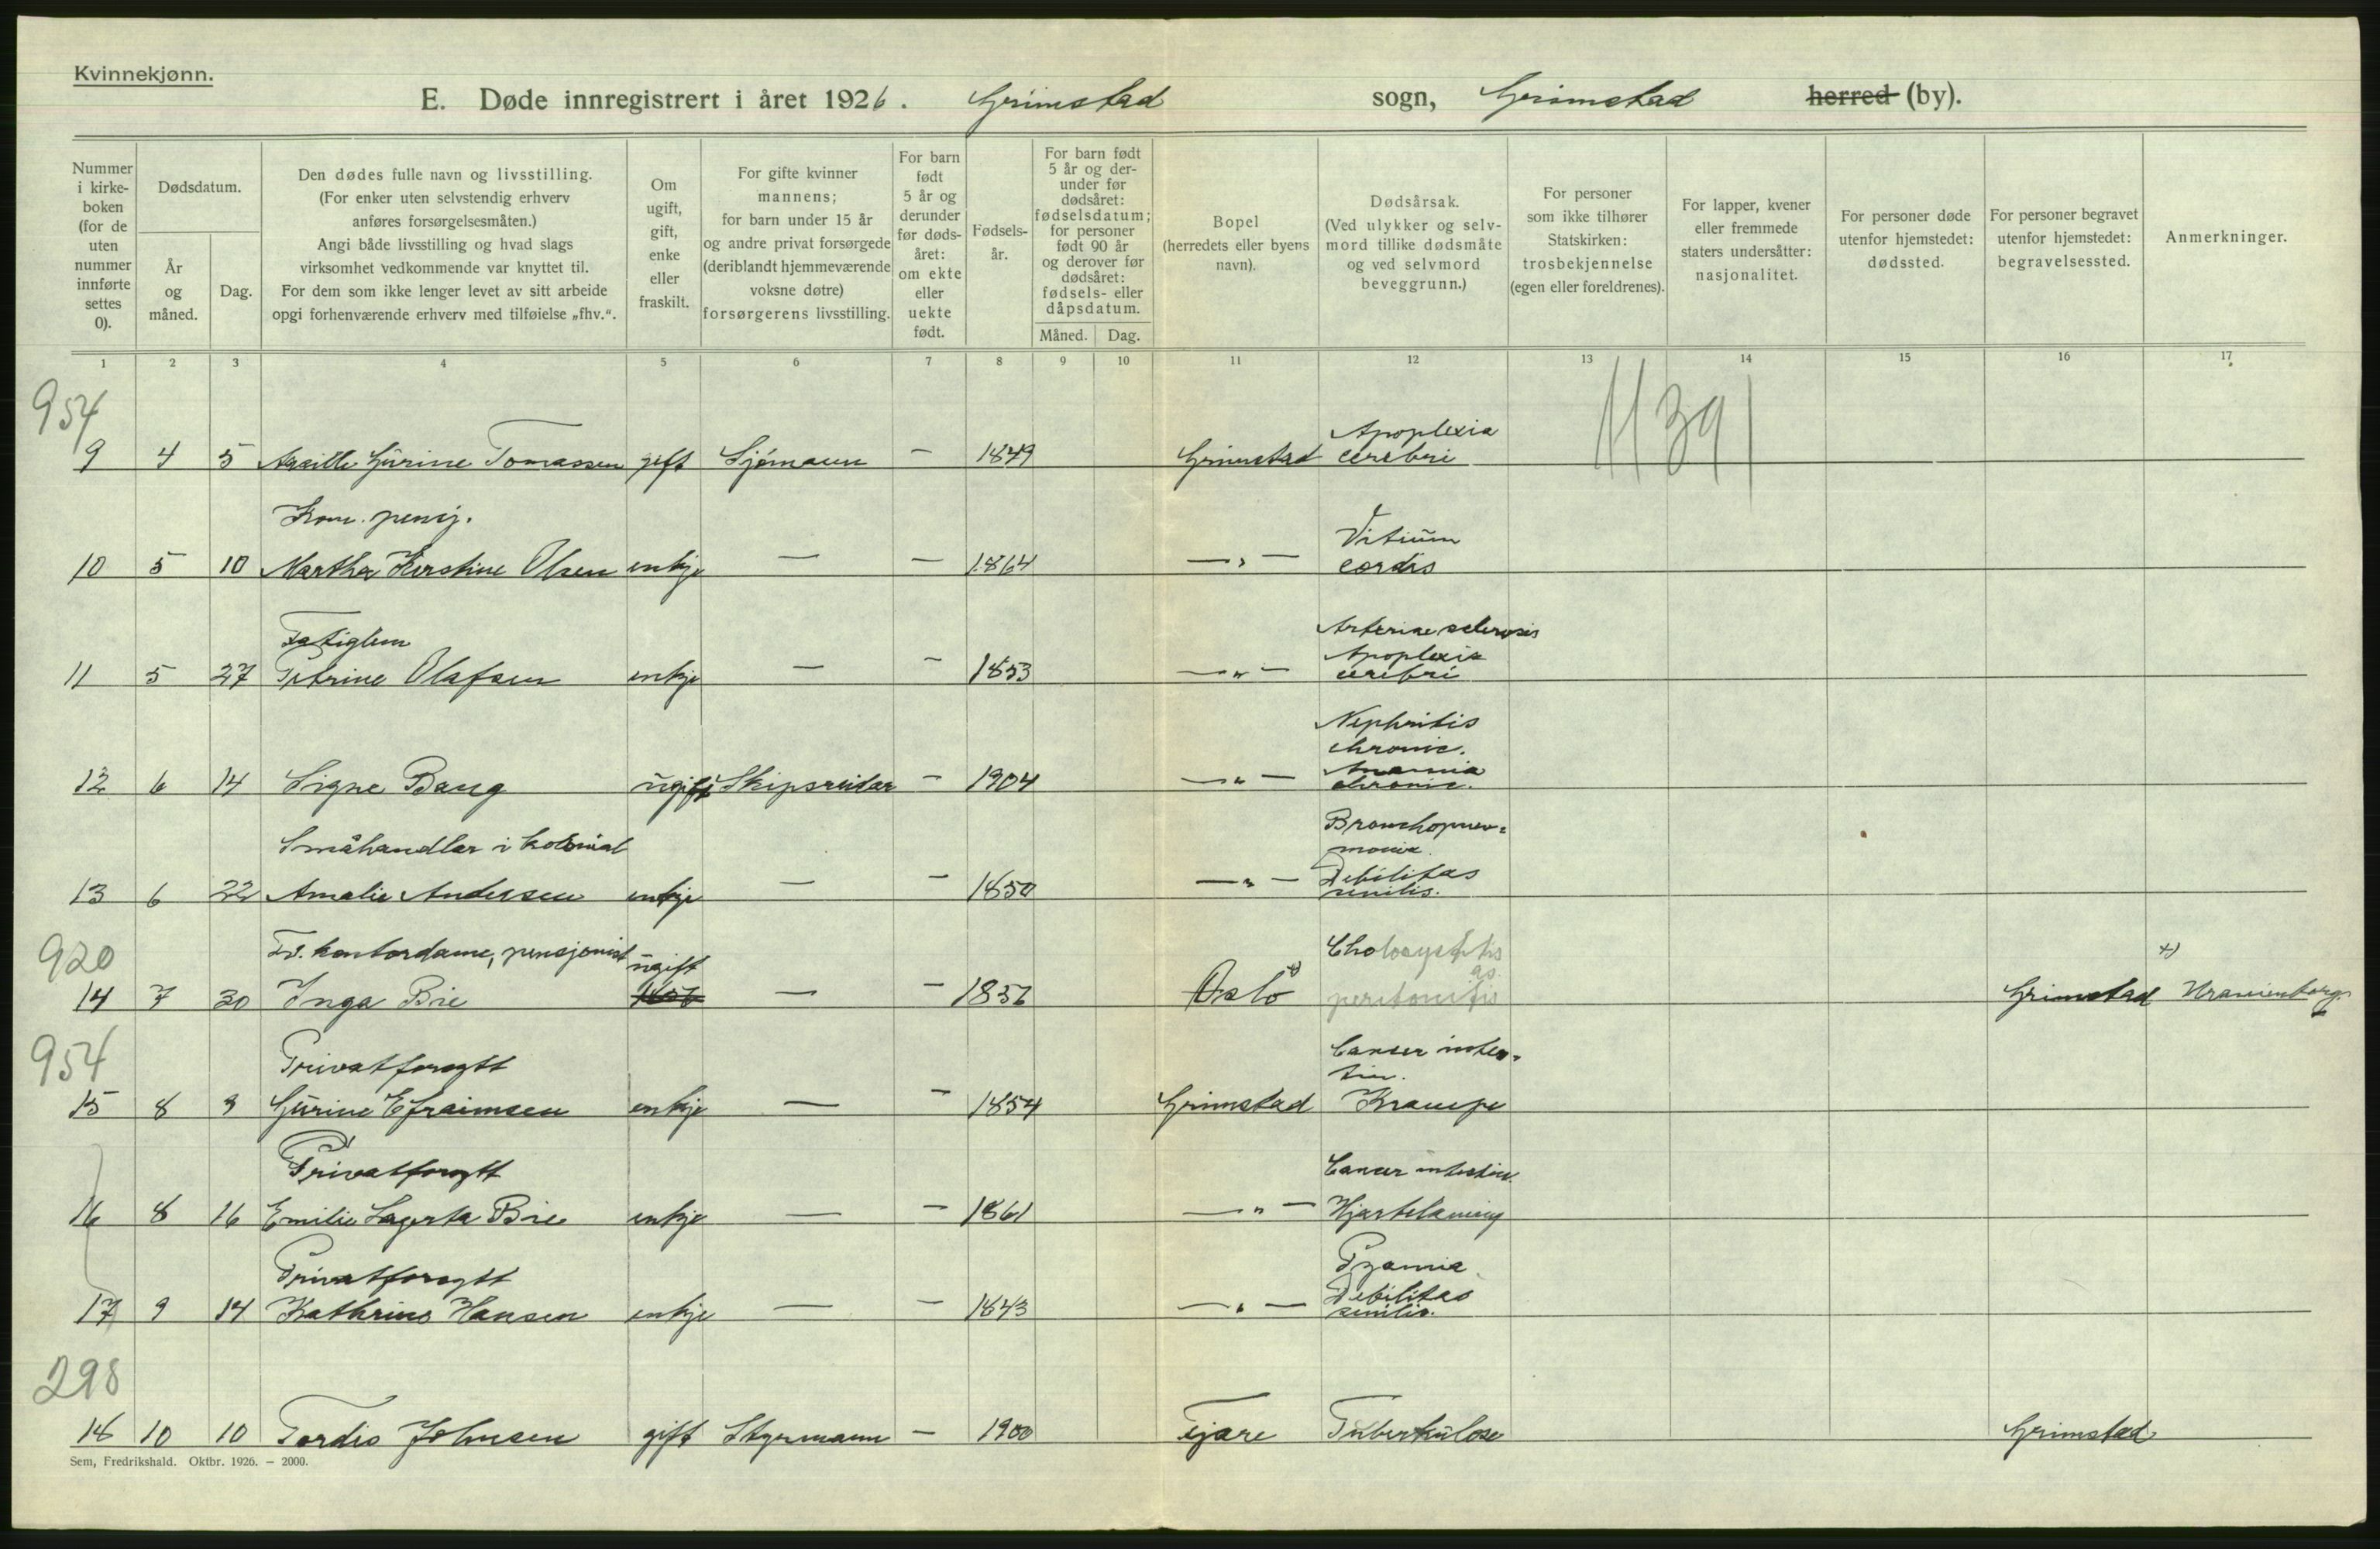 Kvinnekjønn.
E. Døde innregistrert i året 1926. Grimstad sogn, Grimstad herred (by).
Nummer i kirkeboken (for de uten nummer innførte settes 0).
Dødsdatum.
År og måned.
Dag.
Den dødes fulle navn og livsstilling.
(For enker uten selvstendig erhverv
anføres forsørgelsesmåten.)
Angi både livsstilling og hvad slags
virksomhet vedkommende var knyttet til.
For dem som ikke lenger levet av sitt arbeide
opgi forhenværende erhverv med tilføielse „fhv.“.
Om ugift, gift, enke eller fraskilt.
For gifte kvinner
mannens;
for barn under 15 år
og andre privat forsørgede
(deriblandt hjemmeværende
voksne døtre)
forsørgerens livsstilling.
For barn født 5 år og derunder før dødsåret: om ekte eller uekte født.
Fødselsår.
For barn født 5 år og derunder før dødsåret: fødselsdatum; for personer født 90 år og derover før dødsåret: fødsels- eller dåpsdatum.
Måned. Dag.
Bopel
(herredets eller byens
navn).
Dødsårsak.
(Ved ulykker og selvmord tillike dødsmåte
og ved selvmord
beveggrunn.)
For personer
som ikke tilhører
Statskirken:
trosbekjennelse
(egen eller foreldrenes).
For lapper, kvener
eller fremmede
staters undersåtter:
nasjonalitet.
For personer døde
utenfor hjemstedet:
dødssted.
For personer begravet
utenfor hjemstedet:
begravelsessted.
Anmerkninger.
1 2 3 4 5 6 7 8 9 10 11 12 13 14 15 16 17
954
Apoplexia
9 4 5 Gurine Tomassen gift Sjømann – 1849 Grimstad cerebri
Kom. pensj.
Vitium
10 5 10 Martha Kirstine Olsen enkje – – 1864 –„– cordis
Arteriae sclerosis
Fatiglem
Apoplexia
11 5 27 Petrine Olafsen enkje – – 1853 –„– cerebri
Nephritis
chronic.
Anæmia
12 6 14 Signe Bang ugift Skipsreidar – 1904 –„– chronic.
Småhandlar i kolonial
Bronchopneu=
monia.
Debilitas
13 6 22 Amalie Andersen enkje – – 1850 –„– senilis.
920
Fv. kontordame, pensjonist ugift
Cholecystitis
ac.
14 7 30 Inga Bie 1856 – – 1856 Oslo x) peritonitis Grimstad x) Uranienborg
954
Privatforsytt
Cancer intes=
tin.
15 8 9 Gurine Efraimsen enkje – – 1854 Grimstad Krampe
Privatforsytt
Cancer intestin.
16 8 16 Emilie Lagerta Bie enkje – – 1861 –„– Hjartelaming
Privatforsytt
Pyæmia
Debilitas
17 9 14 Kathrine Hansen enkje – – 1843 –„– senilis.
298
18 10 10 Tordis Johnsen gift Styrmann – 1900 Fjære Tuberkulose Grimstad
Sem, Fredrikshald. Oktbr. 1926. – 2000.